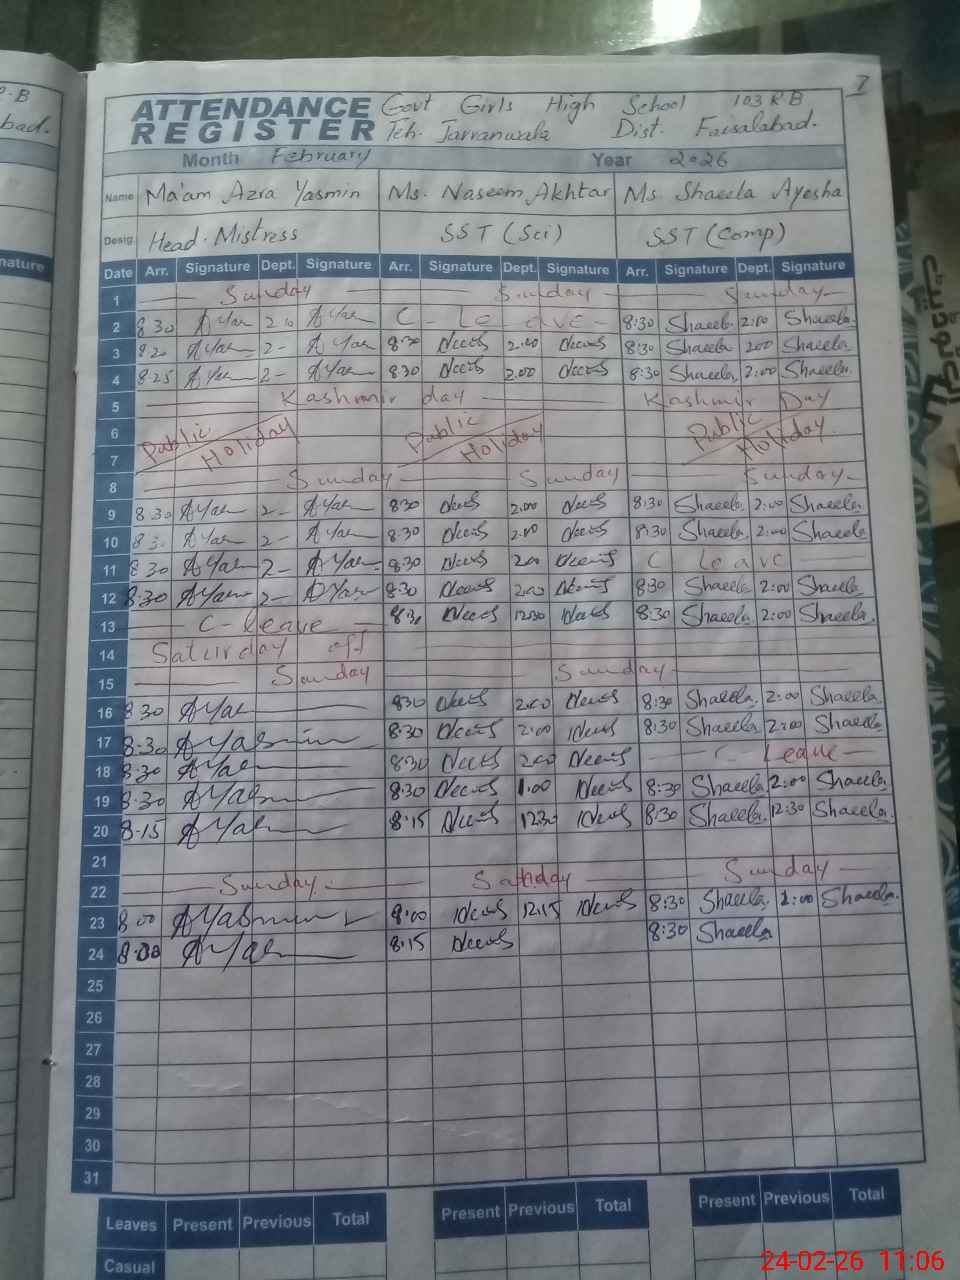 ATTENDANCE REGISTER Govt Girls High School 103 RB
Teh. Jarranwala Dist. Faisalabad.
Month February Year 2026
Name Ma'am Azra Yasmin Ms. Naseem Akhtar Ms. Shaeela Ayesha
Desig. Head. Mistress SST (Sci) SST (Comp)
Date Arr. Signature Dept. Signature Arr. Signature Dept. Signature Arr. Signature Dept. Signature
1 Sunday Sunday Sunday
2 8 30 AYas AYas C - Leave - 8:30 Shaeela 2:00 Shaeela
3 8 20 AYas 2- AYas 8 30 2.00 8:30 Shaeela 200 Shaeela
4 8.25 AYas 2- AYas 830 2.00 8:30 Shaeela 2:00 Shaeela
5 Kashmir day Kashmir Day
6 Public Public Public
7 Holiday Holiday Holiday
8 Sunday Sunday Sunday
9 8 30 AYas 2- AYas 8:30 2.00 8:30 Shaeela 2:00 Shaeela
10 8 30 AYas 2- AYas 8:30 2.00 8:30 Shaeela 2:00 Shaeela
11 8 30 AYas 2- AYas 8:30 200 C leave
12 8:30 AYas 2- AYas 8:30 200 8:30 Shaeela 2:00 Shaeela
13 C- leave 8:30 1230 8:30 Shaeela 2:00 Shaeela
14 Saturday off
15 Sunday Sunday
16 8 30 AYas 830 200 8:30 Shaeela 2:00 Shaeela
17 8:30 AYasmin 8:30 2:00 8:30 Shaeela 2:00 Shaeela
18 8:30 AYas 830 200 C Leave
19 8:30 AYas 8:30 1:00 8:30 Shaeela 2:00 Shaeela
20 8.15 AYas 8:15 1230 8:30 Shaeela 12:30 Shaeela
21
22 Sunday Sunday
23 8:00 AYasmin 8:00 12:15 8:30 Shaeela 2:00 Shaeela
24 8:00 AYas 8:15 8:30 Shaeela
25
26
27
28
29
30
31
Leaves Present Previous Total Present Previous Total Present Previous Total
Casual
24-02-26 11:06